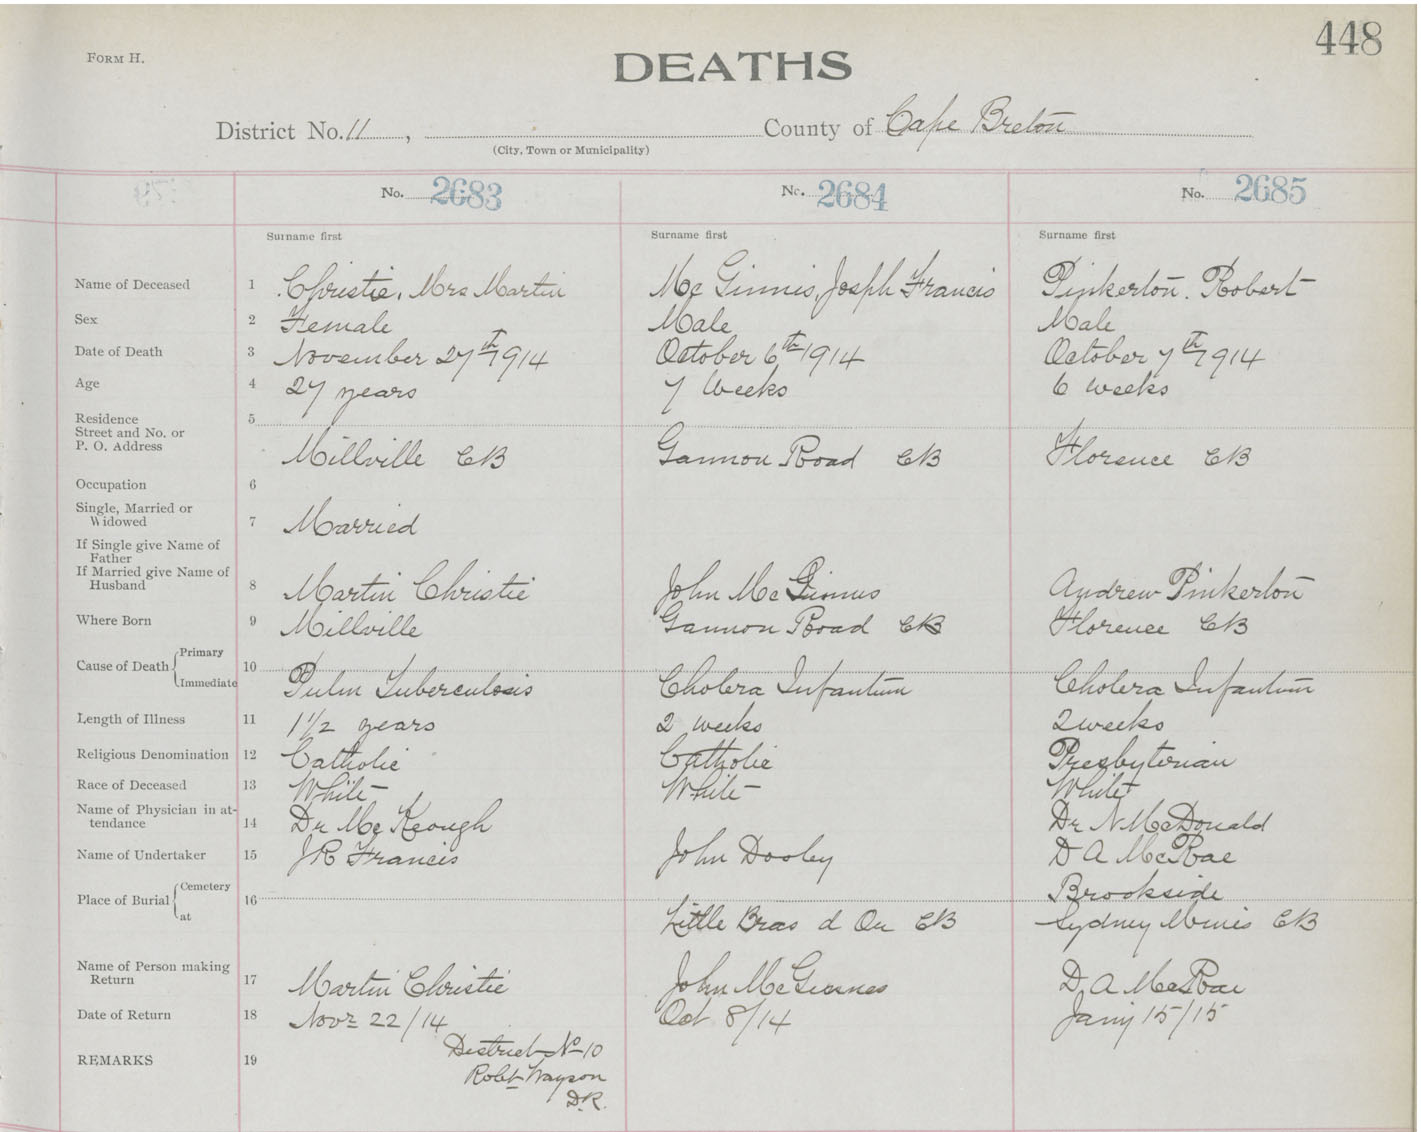 448
FORM H.
DEATHS
District No. 11, County of Cape Breton
(City, Town or Municipality)
No. 2683 No. 2684 No. 2685
Surname first Surname first Surname first
Name of Deceased 1 Christie, Mrs Martin Mc Ginnis, Joseph Francis Pinkerton. Robert
Sex 2 Female Male Male
Date of Death 3 November 27th 1914 October 6th 1914 October 7th 1914
Age 4 27 years 7 Weeks 6 weeks
Residence 5
Street and No. or
P. O. Address Millville CB Gannon Road CB Florence CB
Occupation 6
Single, Married or
Widowed 7 Married
If Single give Name of
Father
If Married give Name of
Husband 8 Martin Christie John Mc Ginnis Andrew Pinkerton
Where Born 9 Millville Gannon Road CB Florence CB
Primary
Cause of Death 10
Immediate Pulm Tuberculosis Cholera Infantum Cholera Infantum
Length of Illness 11 1 1/2 years 2 weeks 2 weeks
Religious Denomination 12 Catholic Catholic Presbyterian
Race of Deceased 13 White White White
Name of Physician in at-
tendance 14 Dr Mc Keough Dr N McDonald
Name of Undertaker 15 J R Francis John Dooley D A McRae
Cemetery Brookside
Place of Burial 16
at Little Bras d Or CB Sydney Mines CB
Name of Person making
Return 17 Martin Christie John Mc Ginnes D. A McRae
Date of Return 18 Novr 22/14 Oct 8/14 Jany 15/15
REMARKS 19 District No 10
Robt
D.R.